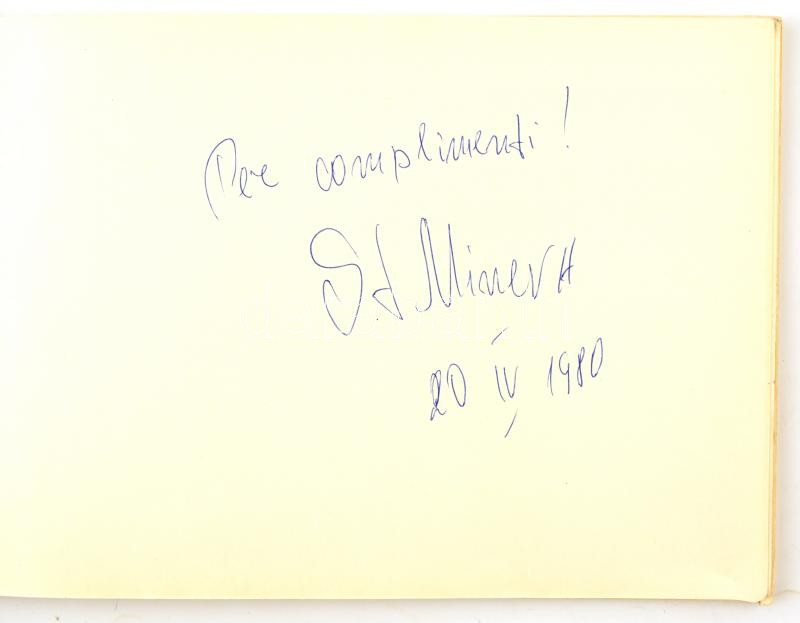 Per complimenti!
St Mineva
20 IV 1980